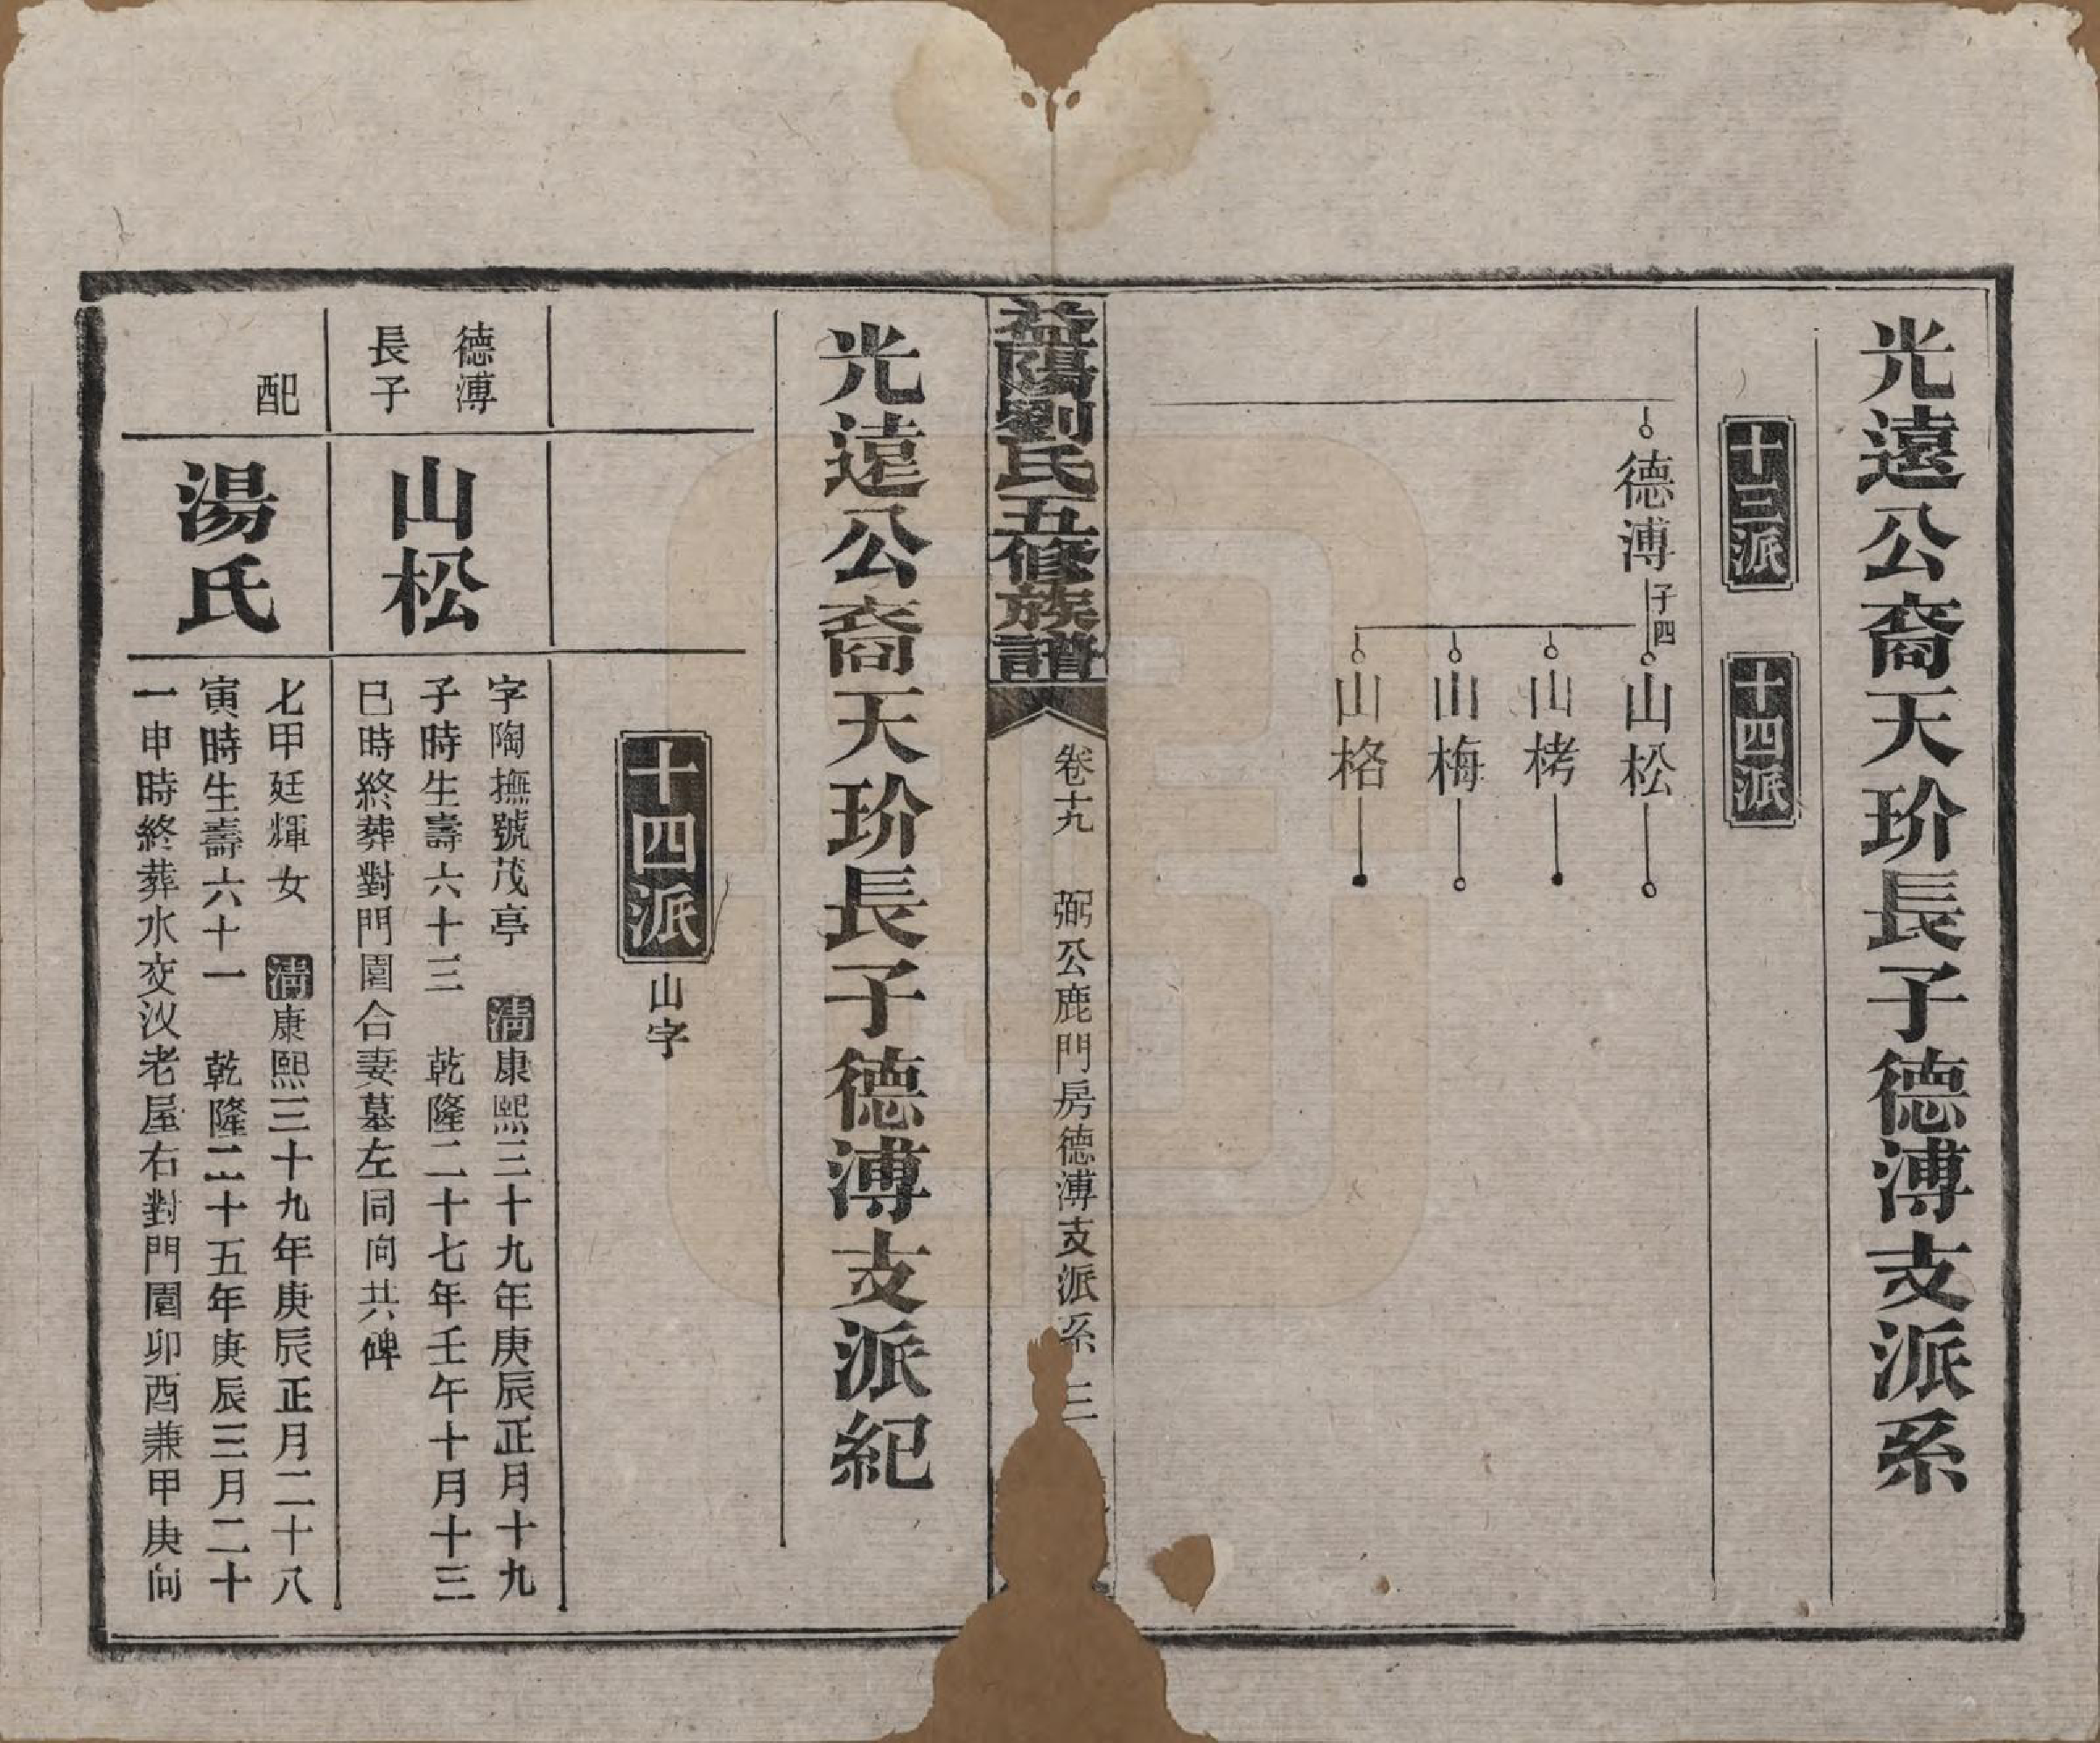 光遠公裔天玠長子德溥支派系
十三派　十四派
德溥 子四
山松
山栲
山梅
山格
益陽劉氏五修族譜
卷十九　弼公鹿門房德溥支派系　三
光遠公裔天玠長子德溥支派紀
十四派 山字
德溥
長子
山松
字陶撫號茂亭　清康熙三十九年庚辰正月十九
子時生壽六十三　乾隆二十七年壬午十月十三
巳時終葬對門園合妻墓左同向共碑
配
湯氏
七甲廷煇女　清康熙三十九年庚辰正月二十八
寅時生壽六十一　乾隆二十五年庚辰三月二十
一申時終葬水交汊老屋右對門園卯酉兼甲庚向